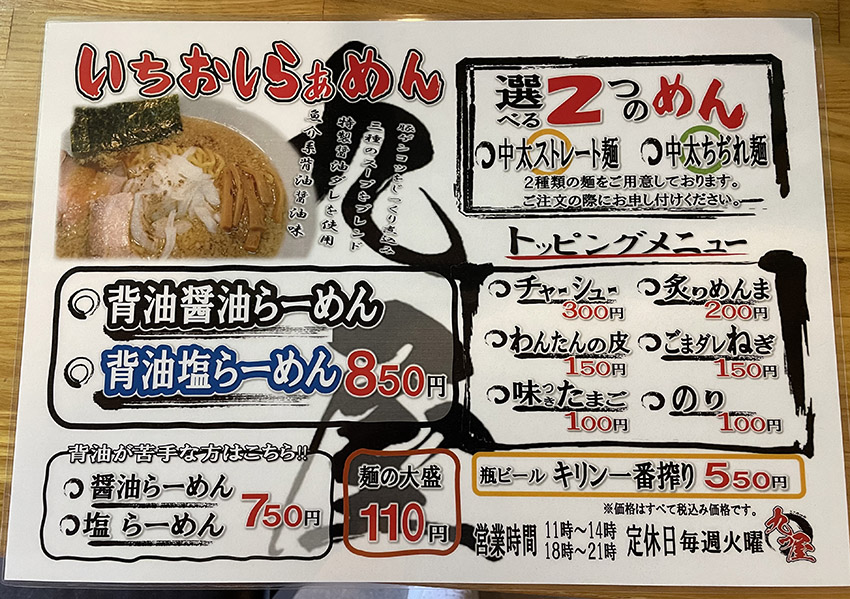 いちおしらぁめん
豚ゲンコツをじっくり煮込み
三種のスープをブレンド
特製醤油ダレを使用
魚介系背油醤油味
選べる2つのめん
中太ストレート麺
中太ちぢれ麺
2種類の麺をご用意しております。
ご注文の際にお申し付けください。
トッピングメニュー
チャーシュー 300円
炙りめんま 200円
わんたんの皮 150円
ごまダレねぎ 150円
味つきたまご 100円
のり 100円
背油醤油らーめん
背油塩らーめん 850円
背油が苦手な方はこちら!!
醤油らーめん
塩らーめん
750円
麺の大盛
110円
瓶ビール キリン一番搾り 550円
※価格はすべて税込み価格です。
営業時間 11時〜14時
18時〜21時
定休日毎週火曜